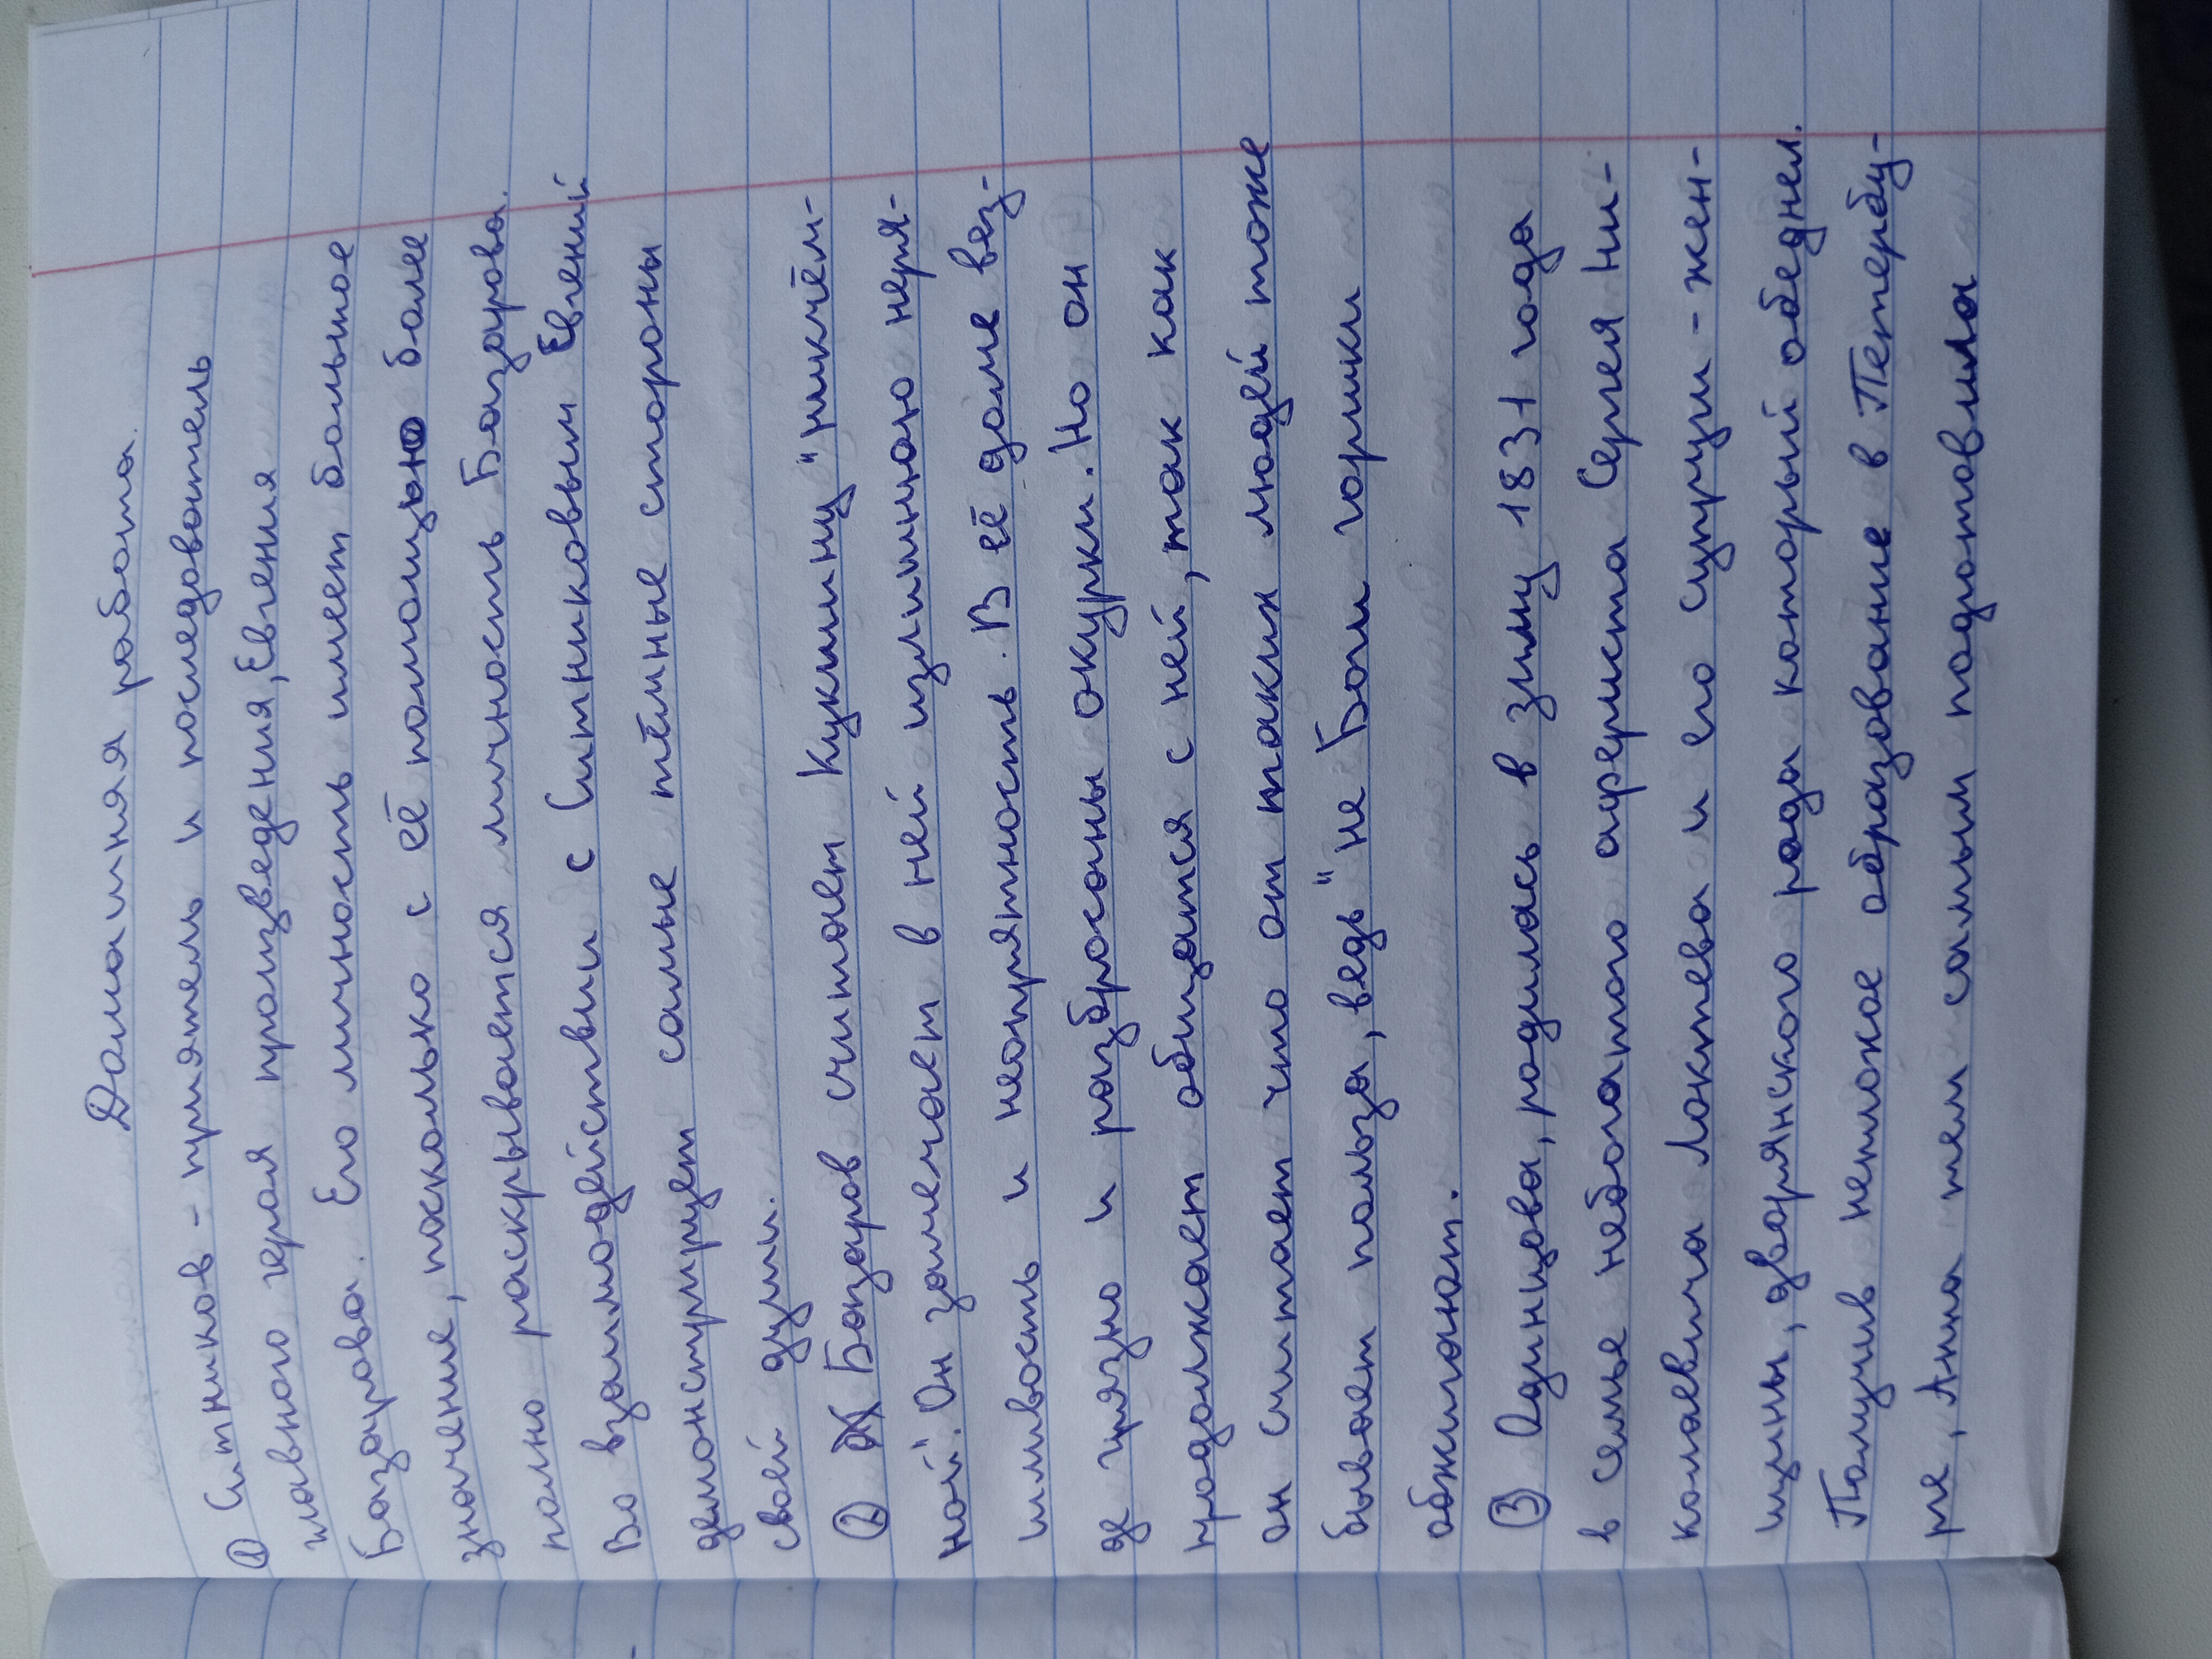 Домашняя работа.
① Ситников - приятель и последователь
главного героя произведения, Евгения
Базарова. Его личность имеет большое
значение, поскольку с её помощью более
полно раскрывается личность Базарова.
Во взаимодействии с Ситниковым Евгений
демонстрирует самые тёмные стороны
своей души.
② Базаров считает Кукшину "никчём-
ной". Он замечает в ней излишнюю неря-
шливость и неопрятность. В её доме вез-
де грязно и разбросаны окурки. Но он
продолжает общатся с ней, так как
он считает что от таких людей тоже
бывает польза, ведь "не Боги горшки
обжигают.
③ Одинцова, родилась в зиму 1831 года
в семье небогатого афериста Сергея Ни-
колаевича Локтева и его супруги - жен-
щины, дворянского рода который обеднел.
Получив неплохое образование в Петербу-
рге, Анна тем самым подготовила